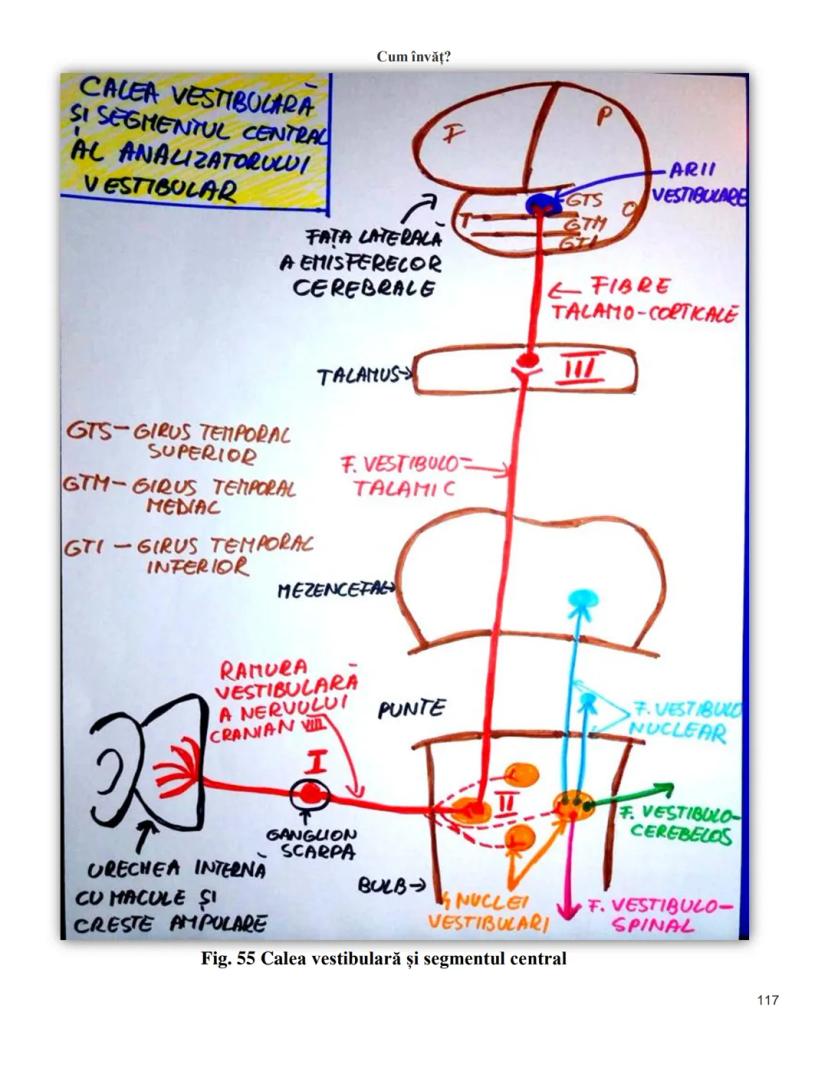 Cum învăț?
CALEA VESTIBULARĂ
ȘI SEGMENTUL CENTRAL
AL ANALIZATORULUI
VESTIBULAR
F
P
ARII
VESTIBULARE
GTS
T
O
GTM
GTI
FAȚA LATERALĂ
A EMISFERELOR
CEREBRALE
← FIBRE
TALAMO-CORTICALE
TALAMUS→
III
GTS – GIRUS TEMPORAL
SUPERIOR
GTM – GIRUS TEMPORAL
MEDIAL
GTI – GIRUS TEMPORAL
INFERIOR
F. VESTIBULO-
TALAMIC
MEZENCEFAL→
RAMURA
VESTIBULARĂ
A NERVULUI
CRANIAN VIII
PUNTE
F. VESTIBULO
NUCLEAR
I
II
GANGLION
SCARPA
F. VESTIBULO-
CEREBELOS
URECHEA INTERNĂ
CU MACULE ȘI
CRESTE AMPULARE
BULB→
4 NUCLEI
VESTIBULARI
F. VESTIBULO-
SPINAL
Fig. 55 Calea vestibulară și segmentul central
117